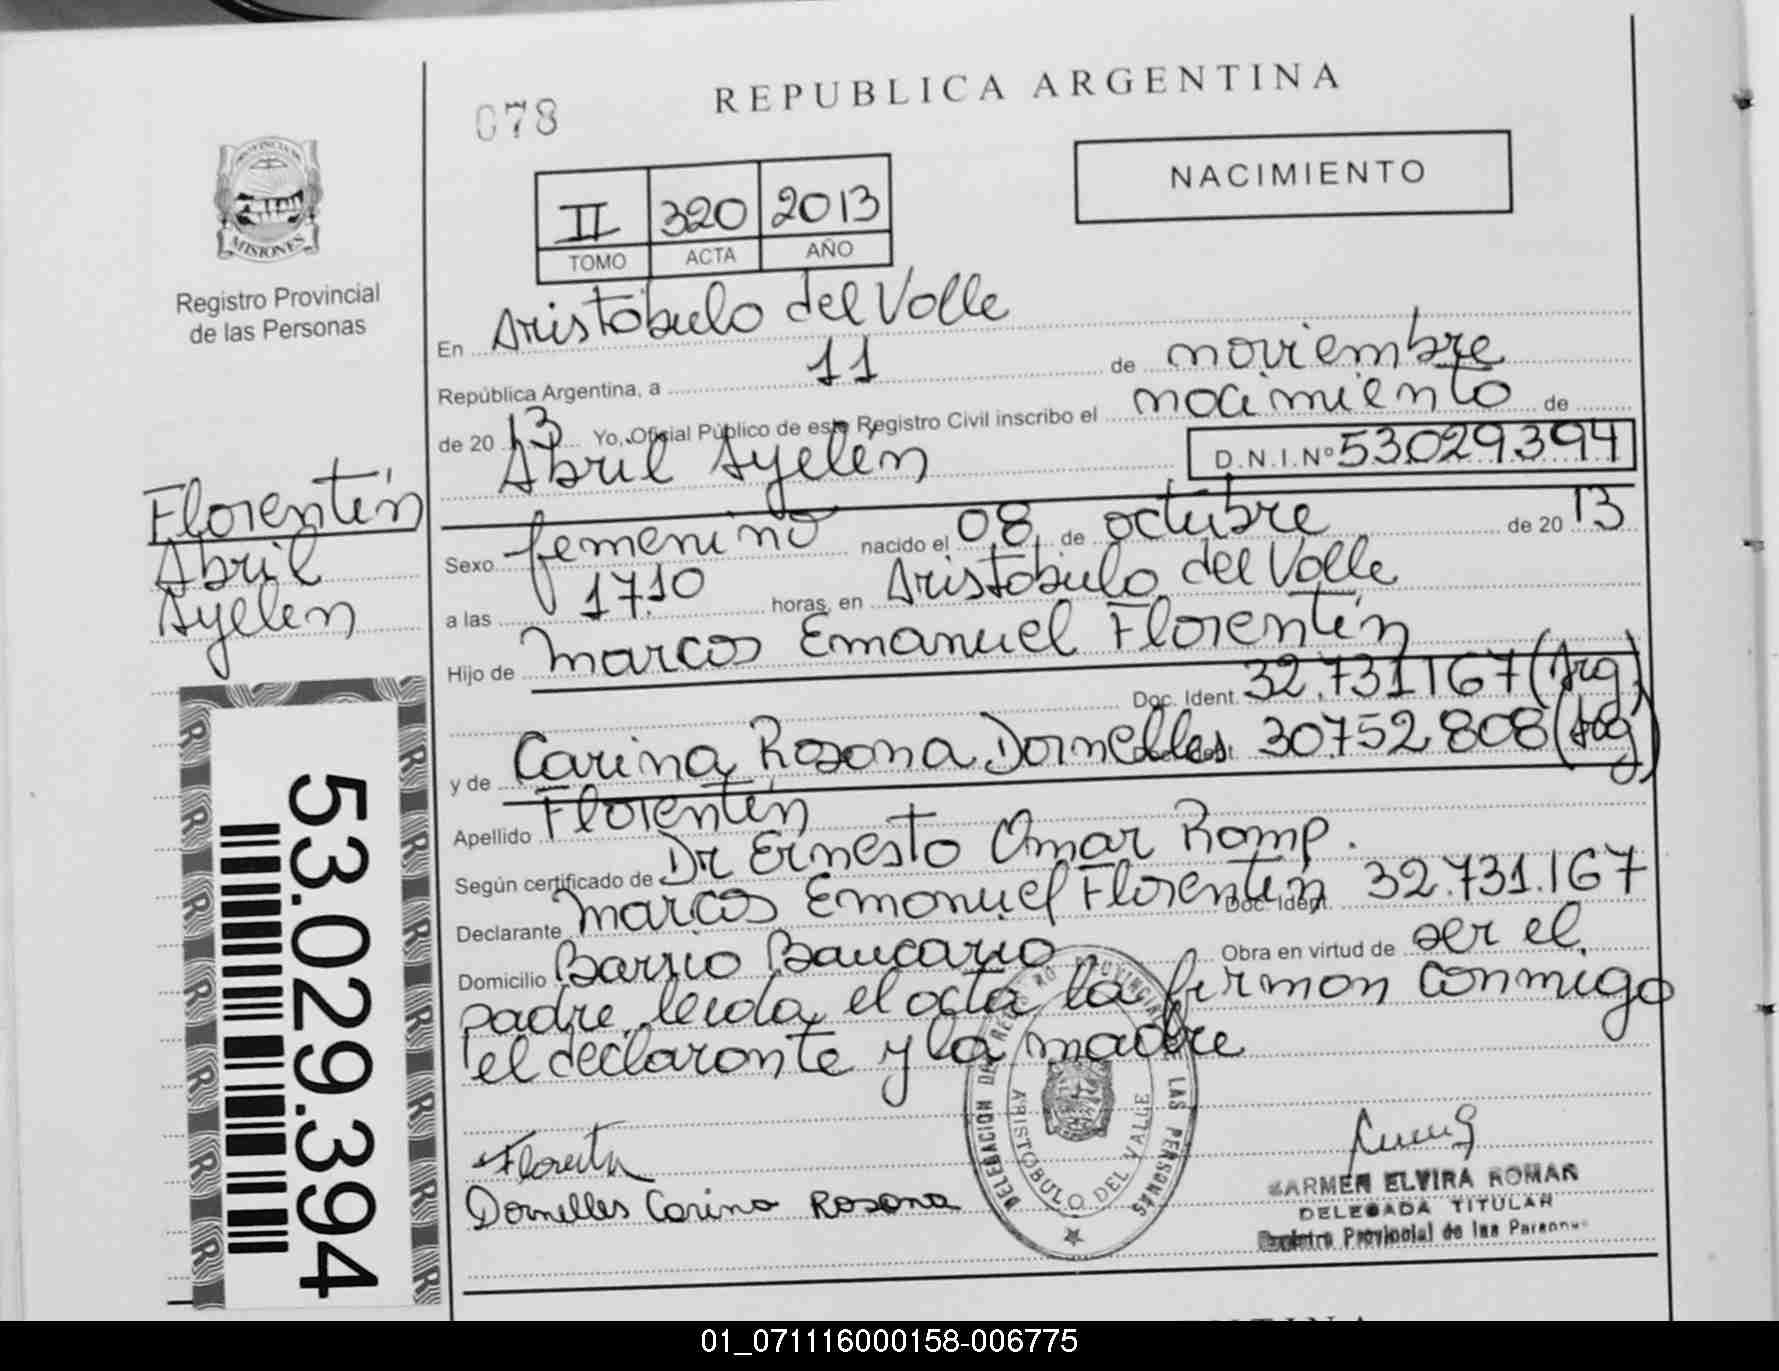 078
REPUBLICA ARGENTINA
NACIMIENTO
II 320 2013
TOMO ACTA AÑO
PROVINCIA DE
MISIONES
Registro Provincial
de las Personas
En Aristóbulo del Valle
República Argentina, a 11 de noviembre
de 20 13 Yo, Oficial Público de este Registro Civil inscribo el nacimiento de
Abril Ayelén D.N.I.Nº 53029394
Florentín
Abril
Ayelén
Sexo femenino nacido el 08 de octubre de 20 13
a las 17.10 horas, en Aristóbulo del Valle
Hijo de Marcos Emanuel Florentín
Doc. Ident. 32.731167 (Arg)
y de Carina Rosana Dornelles 30752808 (Arg)
Apellido Florentín
Según certificado de Dr Ernesto Omar Romp.
Declarante Marcos Emanuel Florentín Doc. Ident. 32.731.167
Domicilio Barrio Bancario Obra en virtud de ser el
padre, leida el acta la firman conmigo
el declarante y la madre
53.029.394
DELEGACION DEL REGISTRO PROVINCIAL DE LAS PERSONAS
ARISTOBULO DEL VALLE
Dornelles Carina Rosana
CARMEN ELVIRA ROMAN
DELEGADA TITULAR
Registro Provincial de las Personas
01_071116000158-006775